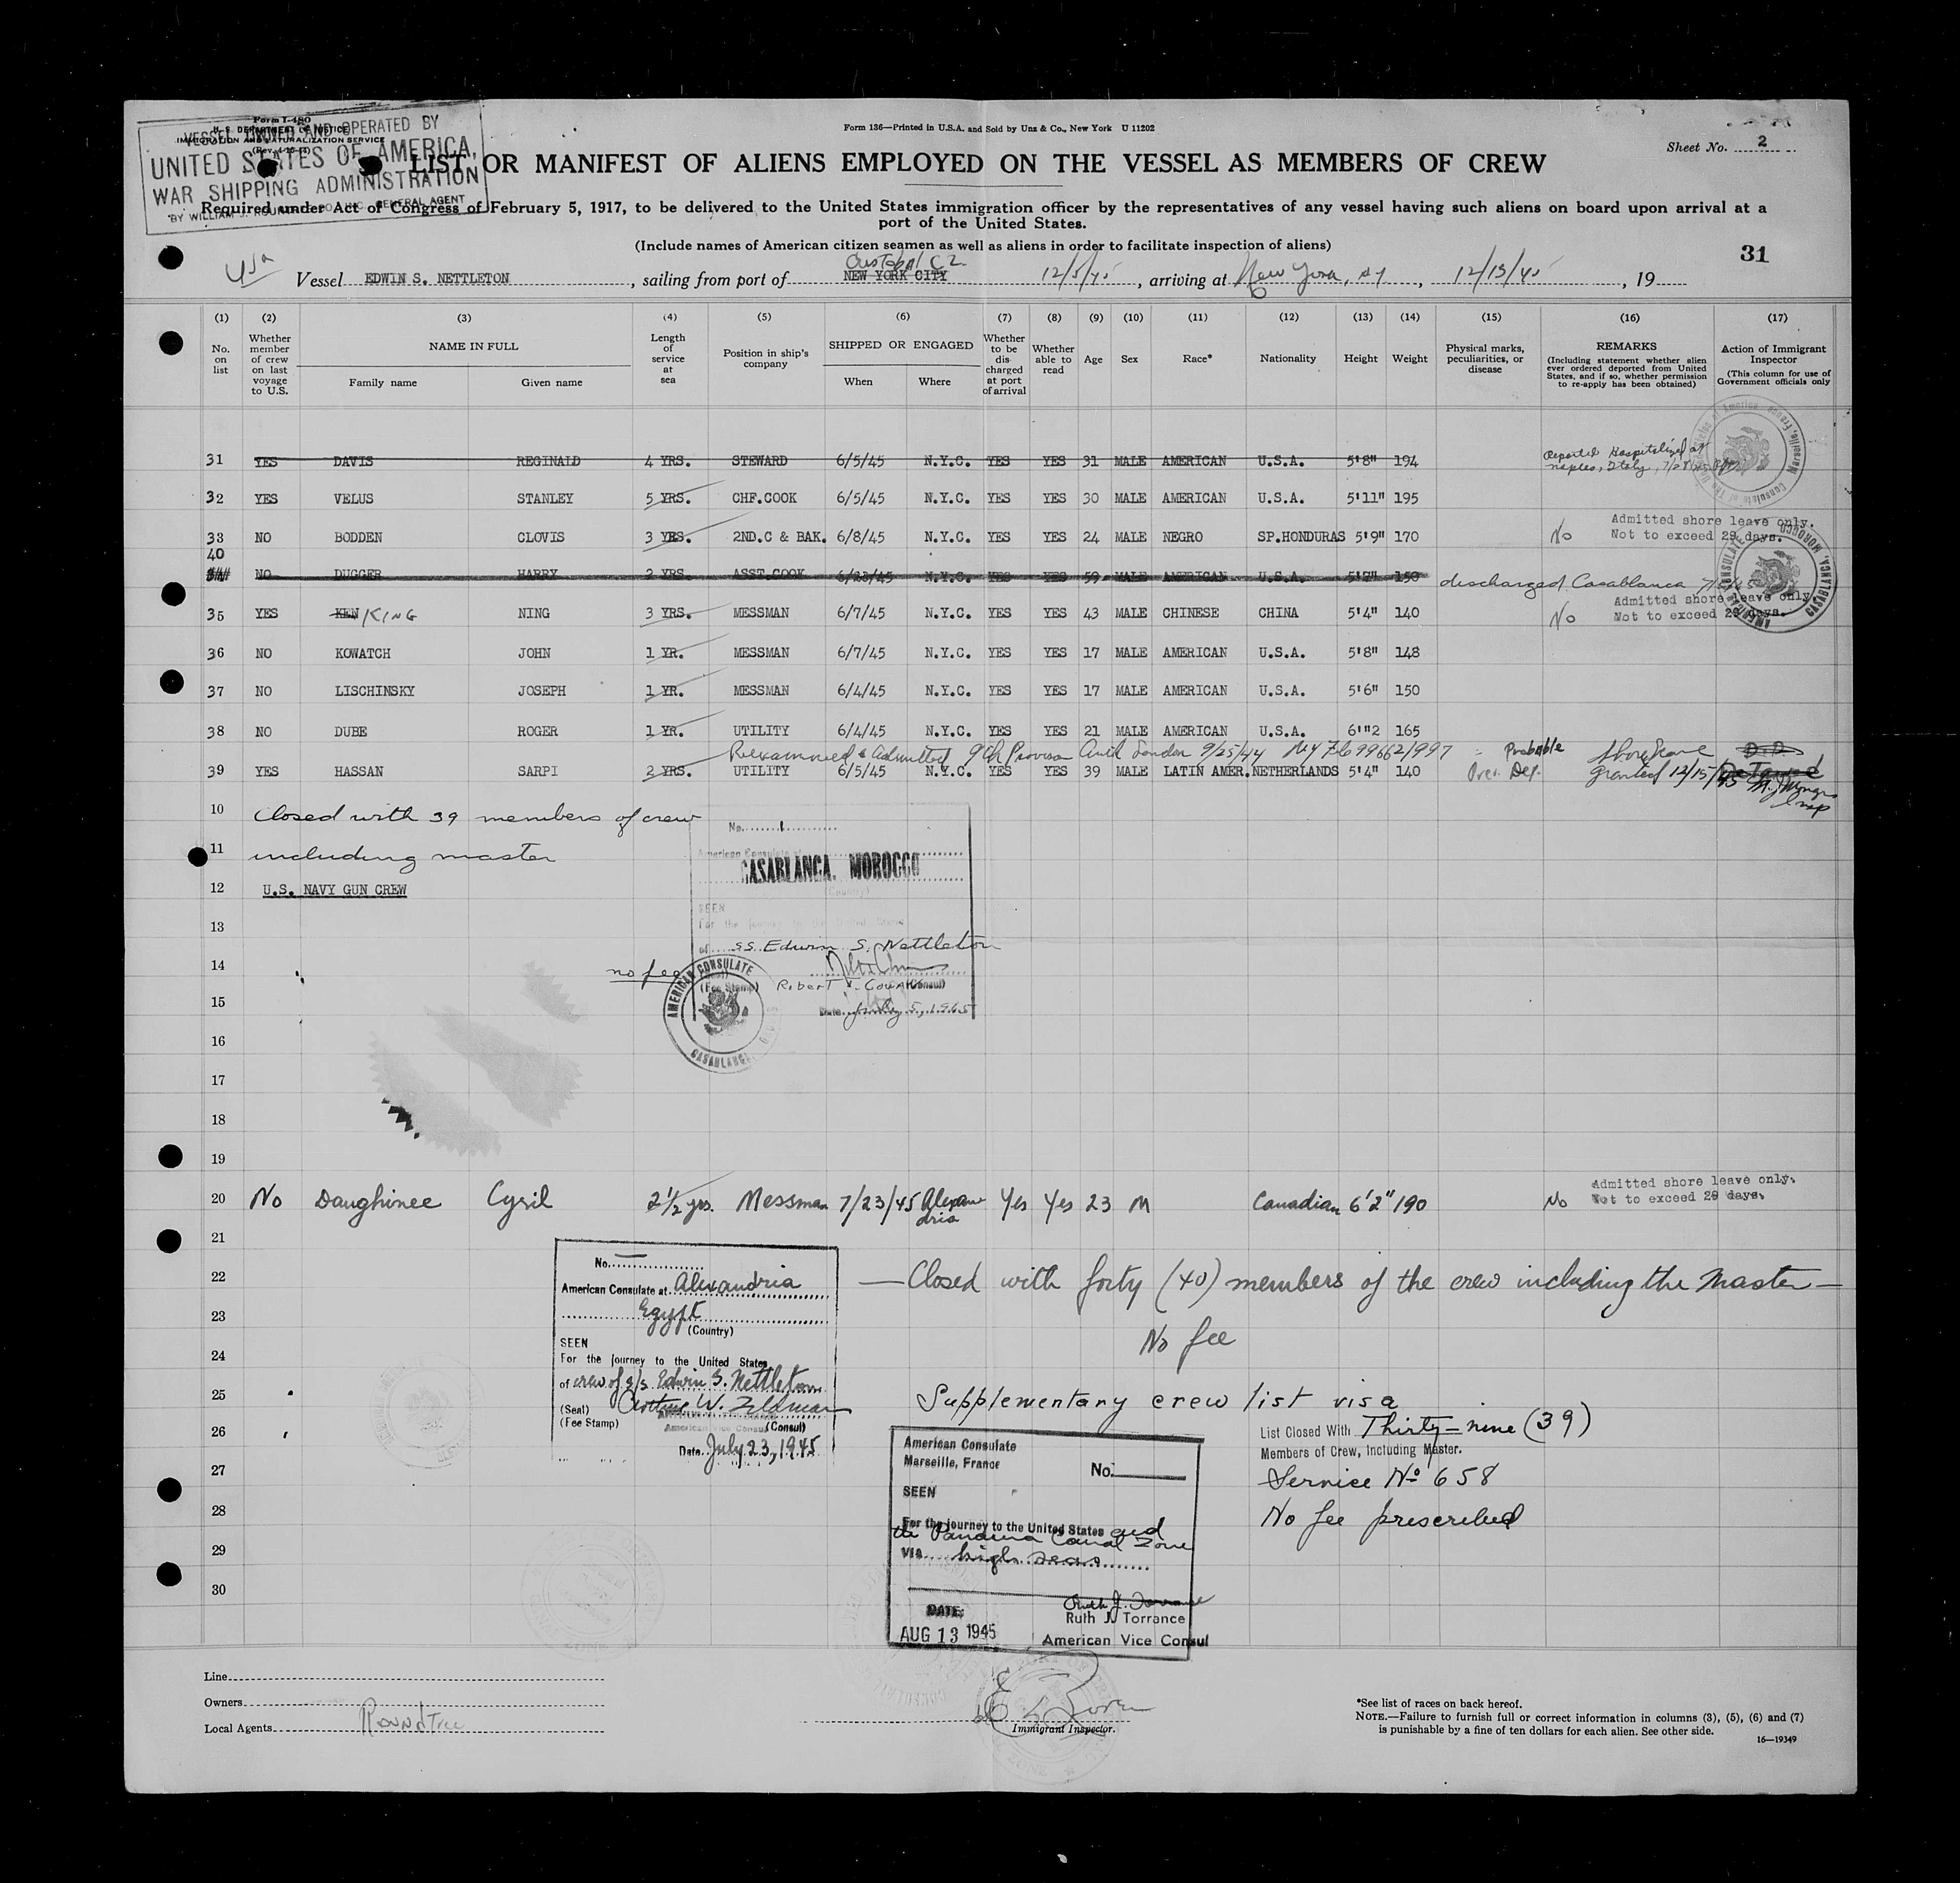 Form I-480
U. S. DEPARTMENT OF JUSTICE
IMMIGRATION AND NATURALIZATION SERVICE
VESSEL OWNED AND OPERATED BY
UNITED STATES OF AMERICA,
WAR SHIPPING ADMINISTRATION
BY WILLIAM J. ROUNTREE CO., INC. GENERAL AGENT
Form 136—Printed in U.S.A. and Sold by Unz & Co., New York U 11202
Sheet No. 2
LIST OR MANIFEST OF ALIENS EMPLOYED ON THE VESSEL AS MEMBERS OF CREW
Required under Act of Congress of February 5, 1917, to be delivered to the United States immigration officer by the representatives of any vessel having such aliens on board upon arrival at a
port of the United States.
(Include names of American citizen seamen as well as aliens in order to facilitate inspection of aliens)
31
USA
Cristobal C Z
Vessel EDWIN S. NETTLETON, sailing from port of NEW YORK CITY 12/5/45, arriving at New York, NY, 12/13/45, 19
(1) (2) (3) (4) (5) (6) (7) (8) (9) (10) (11) (12) (13) (14) (15) (16) (17)
No. on list
Whether member of crew on last voyage to U.S.
NAME IN FULL
Family name
Given name
Length of service at sea
Position in ship's company
SHIPPED OR ENGAGED
When
Where
Whether to be discharged at port of arrival
Whether able to read
Age
Sex
Race*
Nationality
Height
Weight
Physical marks, peculiarities, or disease
REMARKS
(Including statement whether alien ever ordered deported from United States, and if so, whether permission to re-apply has been obtained)
Action of Immigrant Inspector
(This column for use of Government officials only
31 YES DAVIS REGINALD 4 YRS. STEWARD 6/5/45 N.Y.C. YES YES 31 MALE AMERICAN U.S.A. 5'8" 194
Hospitalized at
Naples, Italy
32 YES VELUS STANLEY 5 YRS. CHF.COOK 6/5/45 N.Y.C. YES YES 30 MALE AMERICAN U.S.A. 5'11" 195
33 NO BODDEN CLOVIS 3 YRS. 2ND.C & BAK. 6/8/45 N.Y.C. YES YES 24 MALE NEGRO SP.HONDURAS 5'9" 170 No
Admitted shore leave only.
Not to exceed 29 days.
40
NO DUGGER HARRY 2 YRS. ASST.COOK 6/23/45 N.Y.C. YES YES 59 MALE AMERICAN U.S.A. 5'7" 150
discharged Casablanca
35 YES KEN KING NING 3 YRS. MESSMAN 6/7/45 N.Y.C. YES YES 43 MALE CHINESE CHINA 5'4" 140 No
Admitted shore leave only
Not to exceed 29 days.
36 NO KOWATCH JOHN 1 YR. MESSMAN 6/7/45 N.Y.C. YES YES 17 MALE AMERICAN U.S.A. 5'8" 148
37 NO LISCHINSKY JOSEPH 1 YR. MESSMAN 6/4/45 N.Y.C. YES YES 17 MALE AMERICAN U.S.A. 5'6" 150
38 NO DUBE ROGER 1 YR. UTILITY 6/4/45 N.Y.C. YES YES 21 MALE AMERICAN U.S.A. 6'"2 165
Reexamined & Admitted 9th Proviso 9/25/44 NY
39 YES HASSAN SARPI 2 YRS. UTILITY 6/5/45 N.Y.C. YES YES 39 MALE LATIN AMER. NETHERLANDS 5'4" 140
Probable
Prev. Dep.
Shore leave
granted 12/15/45
10 Closed with 39 members of crew
11 including master
12 U.S. NAVY GUN CREW
13
14
15
16
17
18
19
No. 1
American Consulate at
CASABLANCA, MOROCCO
(Country)
SEEN
For the journey to the United States
of SS Edwin S. Nettleton
no fee
(Fee Stamp)
Robert
(Consul)
Date July 5, 1945
AMERICAN CONSULATE
CASABLANCA
20 No Daughinee Cyril 2½ yrs. Messman 7/23/45 Alexandria Yes Yes 23 M Canadian 6'2" 190 No
Admitted shore leave only.
Not to exceed 29 days.
21
22
23
24
25
26
27
28
29
30
No.
American Consulate at Alexandria
Egypt
(Country)
SEEN
For the journey to the United States
of crew of s/s Edwin S. Nettleton
(Seal)
Arthur W. Feldman
(Fee Stamp)
American Vice Consul
(Consul)
Date July 23, 1945
—Closed with forty (40) members of the crew including the Master—
No fee
Supplementary crew list visa
American Consulate
Marseille, France
No.
SEEN
For the journey to the United States and
the Panama Canal Zone
VIA high seas
DATE:
AUG 13 1945
Ruth J. Torrance
Ruth J. Torrance
American Vice Consul
List Closed With Thirty-nine (39)
Members of Crew, Including Master.
Service No 658
No fee prescribed
Line
Owners
Local Agents Roundtree
Immigrant Inspector.
*See list of races on back hereof.
NOTE.—Failure to furnish full or correct information in columns (3), (5), (6) and (7)
is punishable by a fine of ten dollars for each alien. See other side.
16—19349